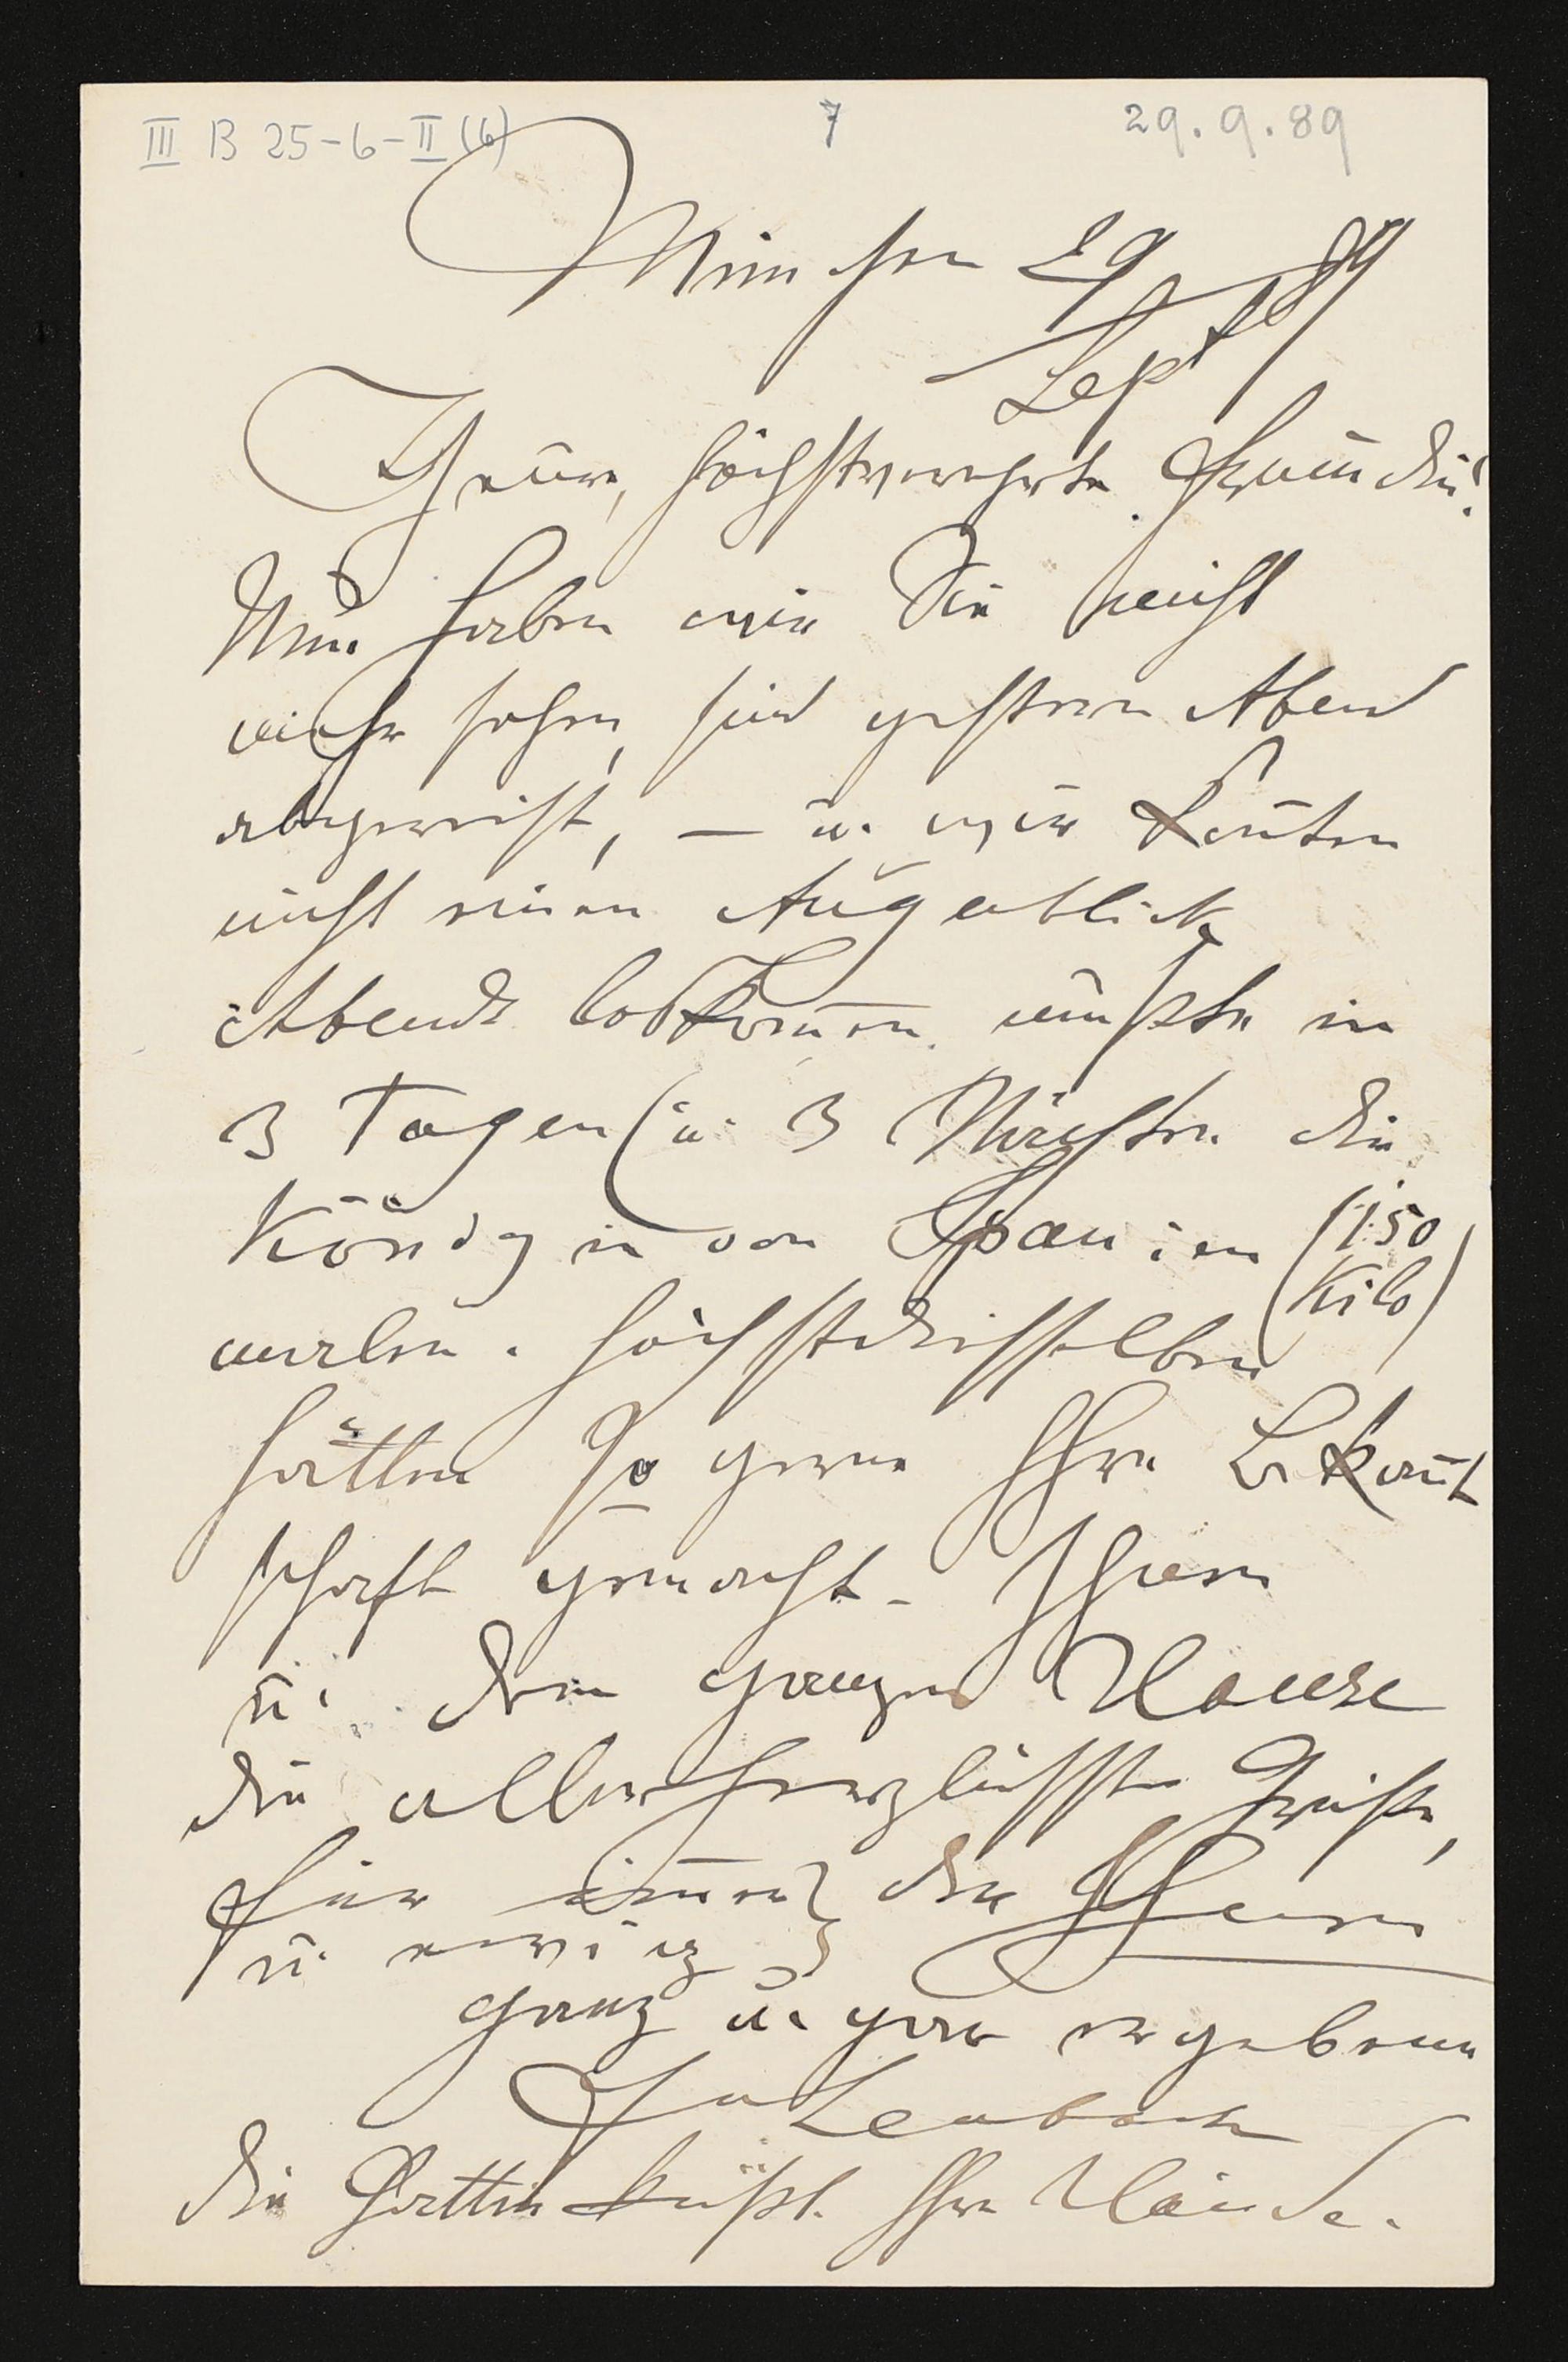 III B 25-6-II (6) 7 29.9.89
München 29 Sept 89
Theure, höchstverehrte Freundin!
Nun haben wir Sie nicht
mehr sehen, sind gestern Abend
abgereist, — u. wir konten
nicht einen Augenblick
Abends loskomen. mußte in
3 Tagen (u. 3 Nächten die
Königin von Spanien (150
Kilo)
malen. Höchstdieselben
hätten so gerne Ihre Bekant
schaft gemacht. Ihnen
u. dem ganzen Hause
die allerherzlichsten Grüße,
für imer} der Ihren
u. ewig}
ganz u. gar ergebene
Lenbach
die Gattin küßt Ihre Hände.